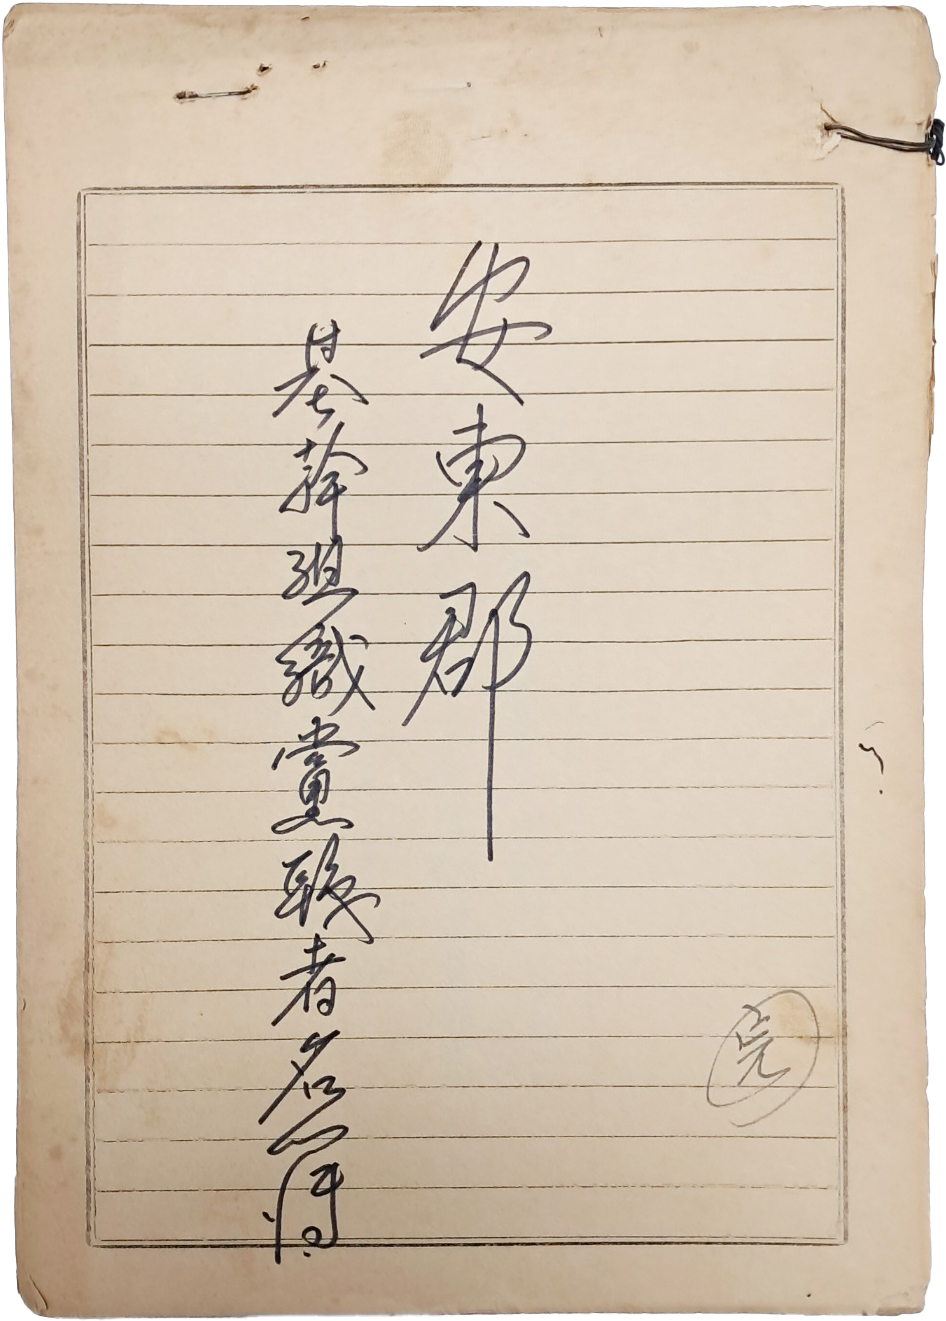 安東郡
基幹組織黨職者名簿
完